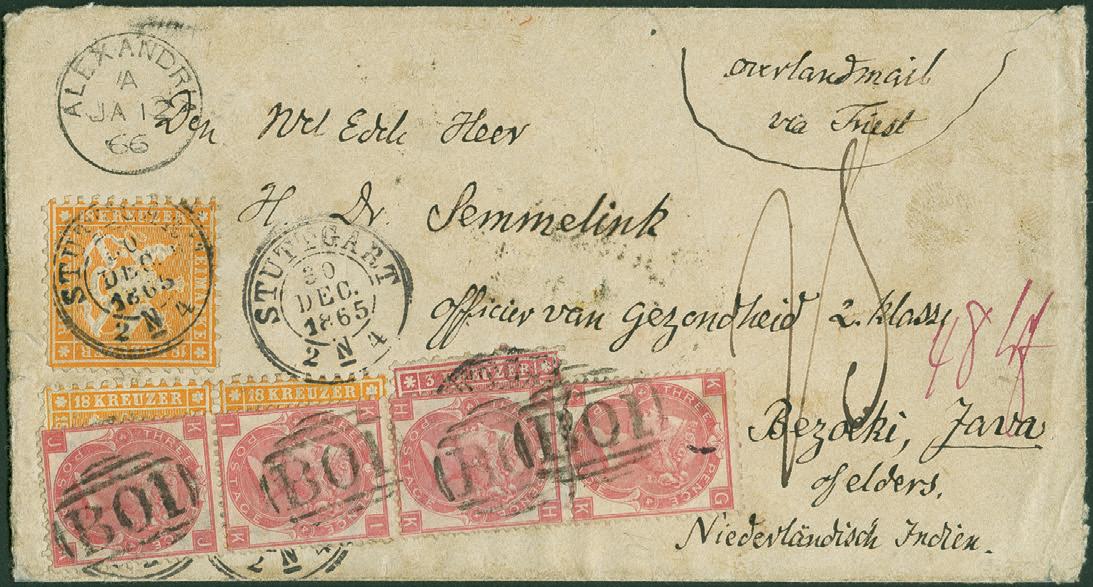 overlandmail
via Triest
ALEXANDRIA
A
JA 12
66
Den Wel Edele Heer
H Dr Semmelink
Officier van Gezondheid 2. klasse
Bezoeki, Java
of elders.
Niederländisch Indien.
18 KREUZER
STUTTGART
30
DEC.
1865
2 N 4
STUTTGART
30
DEC.
1865
2 N 4
18 KREUZER
18 KREUZER
3 KREUZER
48
J K THREE PENCE POSTAGE K J
I K THREE PENCE POSTAGE K I
H K THREE PENCE POSTAGE K H
K THREE PENCE POSTAGE K G
B01
B01
B01
B01
2 N 4